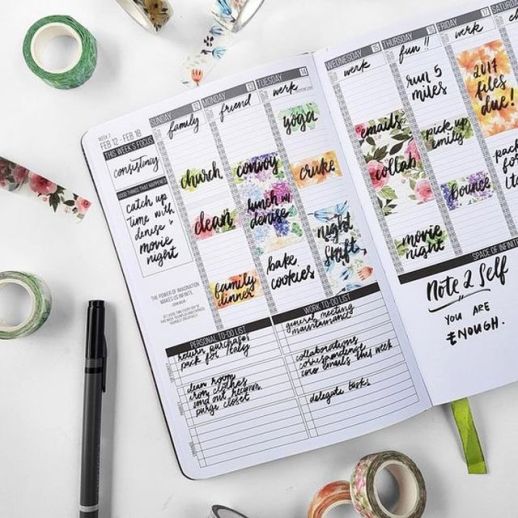 WEEK 7
FEB 12 - FEB 18
THIS WEEK'S FOCUS
consistency
GOOD THINGS THAT HAPPENED
catch up
time with
denise &
movie
night
THE POWER OF IMAGINATION
MAKES US INFINITE.
SUNDAY 12
family
church
clean
family
dinner
MONDAY 13
friend
convoy
lunch with
denise
bake
cookies
TUESDAY 14
work
yoga
cruke
night
shift
PERSONAL TO-DO LIST
return purchase
pack for Italy
clean room
iron clothes
send out
purge closet
WORK TO-DO LIST
general meeting
maintenance
collaborations
correspondence
emails this week
delegate tasks
WEDNESDAY 15
work
emails
&
collab
THURSDAY 16
fun!!
run 5
miles
pick up
Emily
movie
night
FRIDAY 17
work
2017
files
due!
bounce
SATURDAY
pack
for
SPACE OF INFIN
Note 2 Self
YOU ARE
ENOUGH.